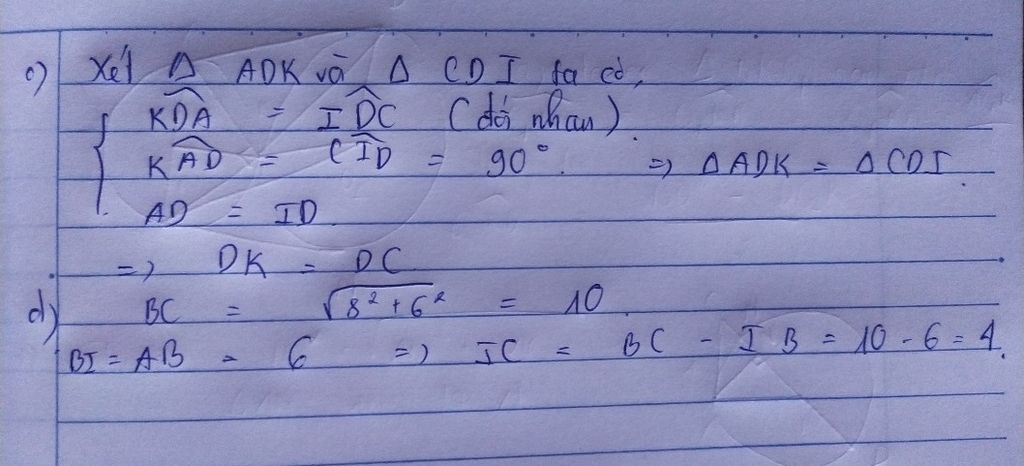 c) Xét Δ ADK và Δ CDI ta có,
KDA = IDC (đối nhau).
KAD = CID = 90°. => Δ ADK = Δ CDI.
AD = ID
=> DK = DC
d) BC = √8² + 6² = 10
BI = AB = 6 => IC = BC - IB = 10 - 6 = 4.